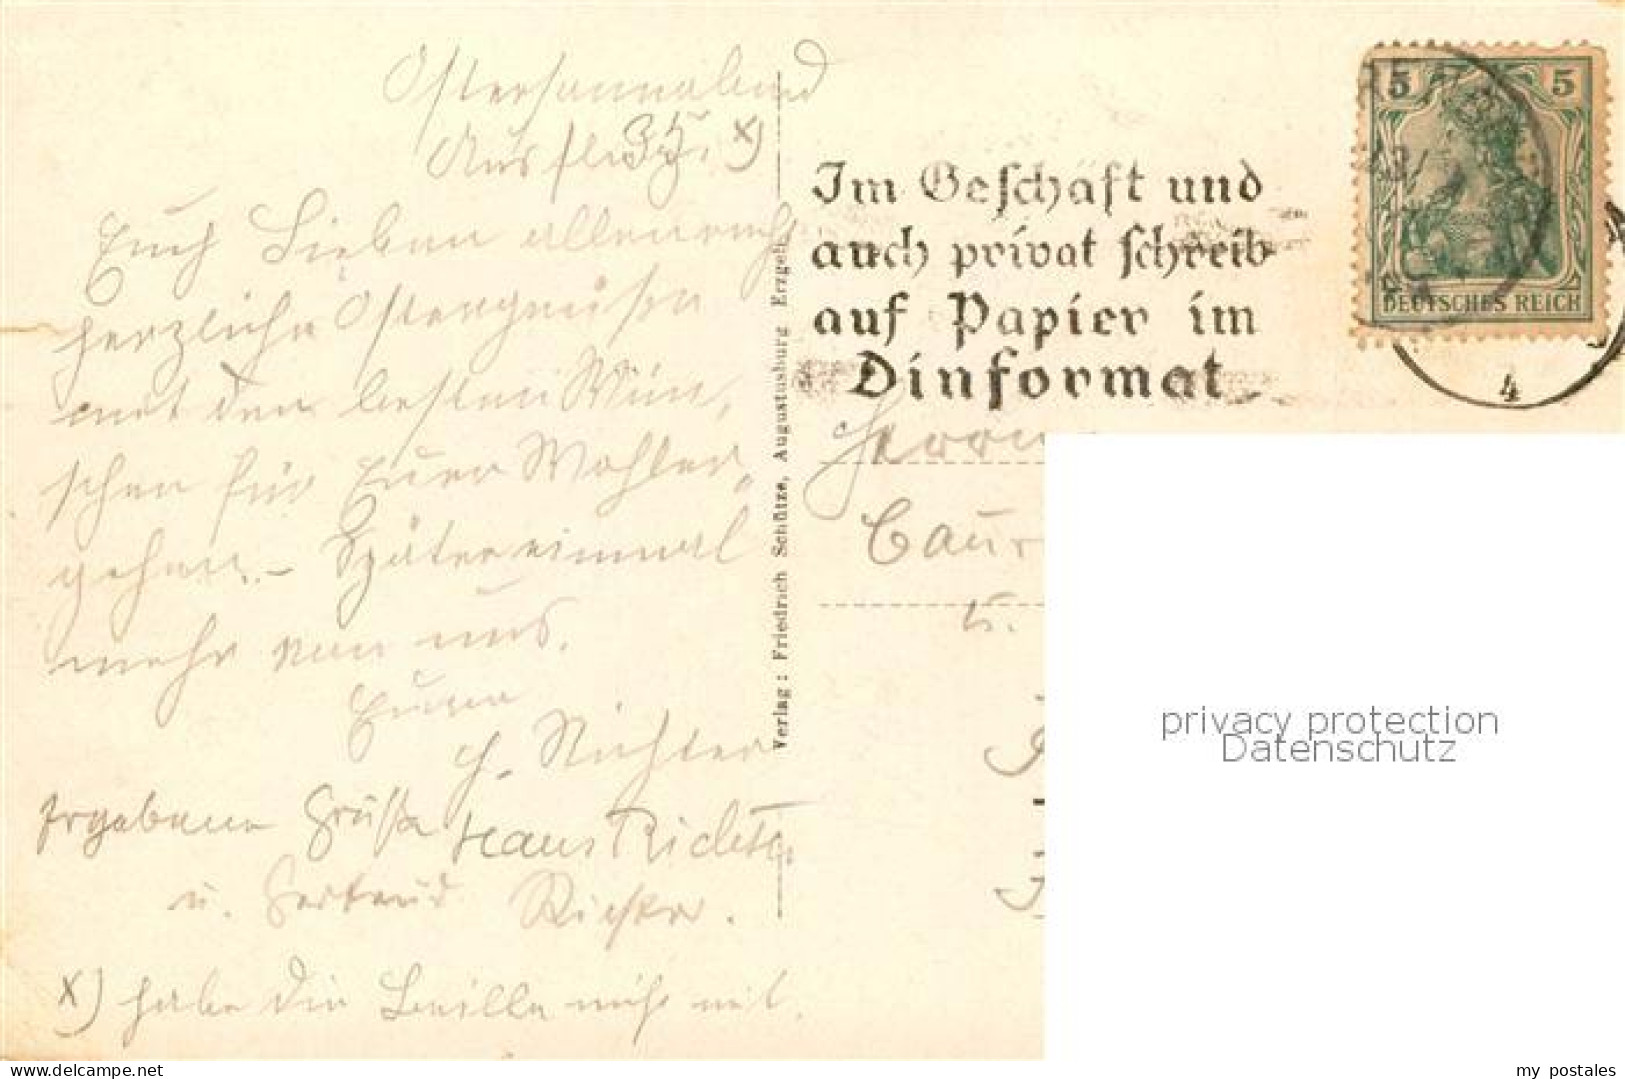 Ostersonnabend
Ausflug 35. x)
Euch Lieben allen recht
herzliche Ostergrüße
mit den besten Wün-
schen für Euer Wohler-
gehen. – Später einmal
mehr von uns.
Eure
H. Richter
Ergebene Grüße Hans Richter
u. Gertrud Richter.
x) habe die Brille nicht mit.
Verlag: Friedrich Schütze, Augustusburg Erzgeb.
Im Geschäft und
auch privat schreib
auf Papier im
Dinformat
5 5
DEUTSCHES REICH
4
Herrn
u.
privacy protection
Datenschutz
my postales